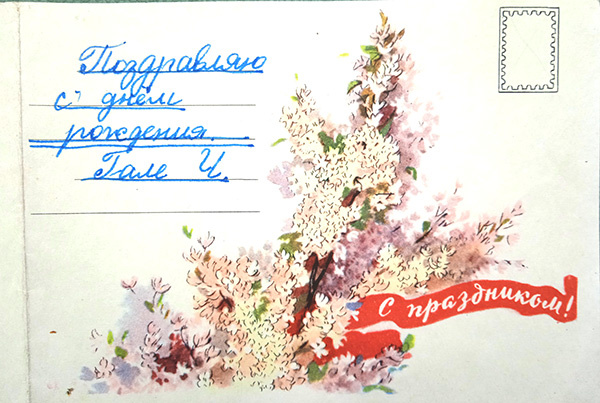 Поздравляю
с днём
рождения.
Гале И.
С праздником!